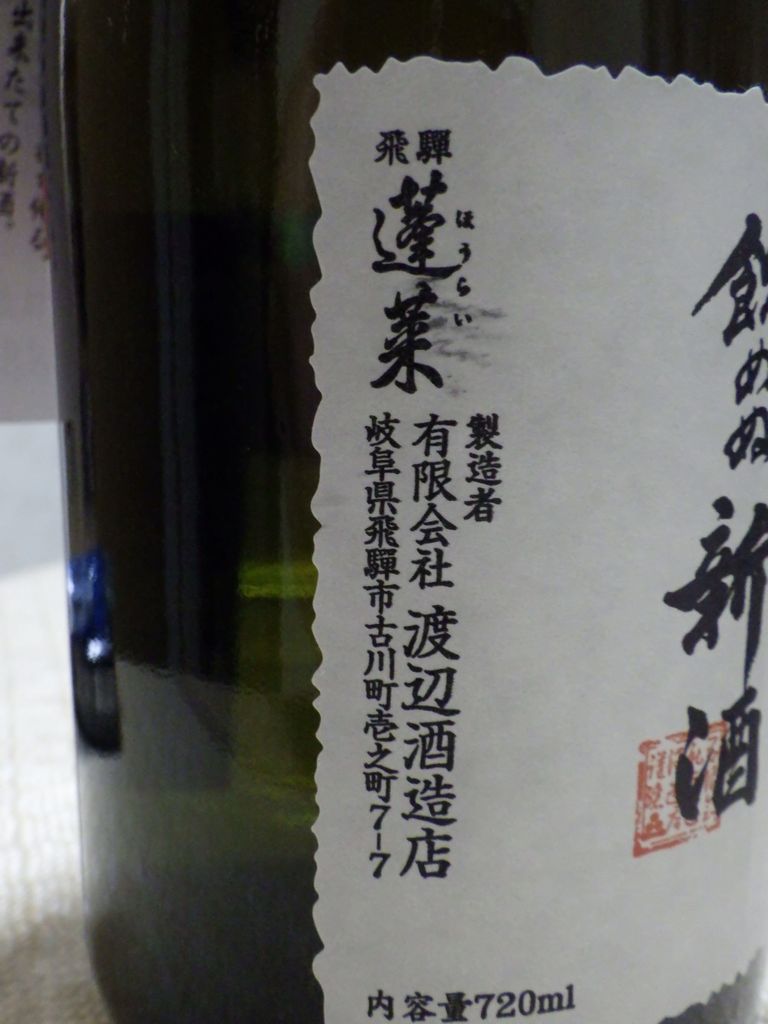 飲めぬ新酒
飛騨
蓬莱
ほうらい
製造者
有限会社 渡辺酒造店
岐阜県飛騨市古川町壱之町7-7
内容量720ml
出来たての新酒。